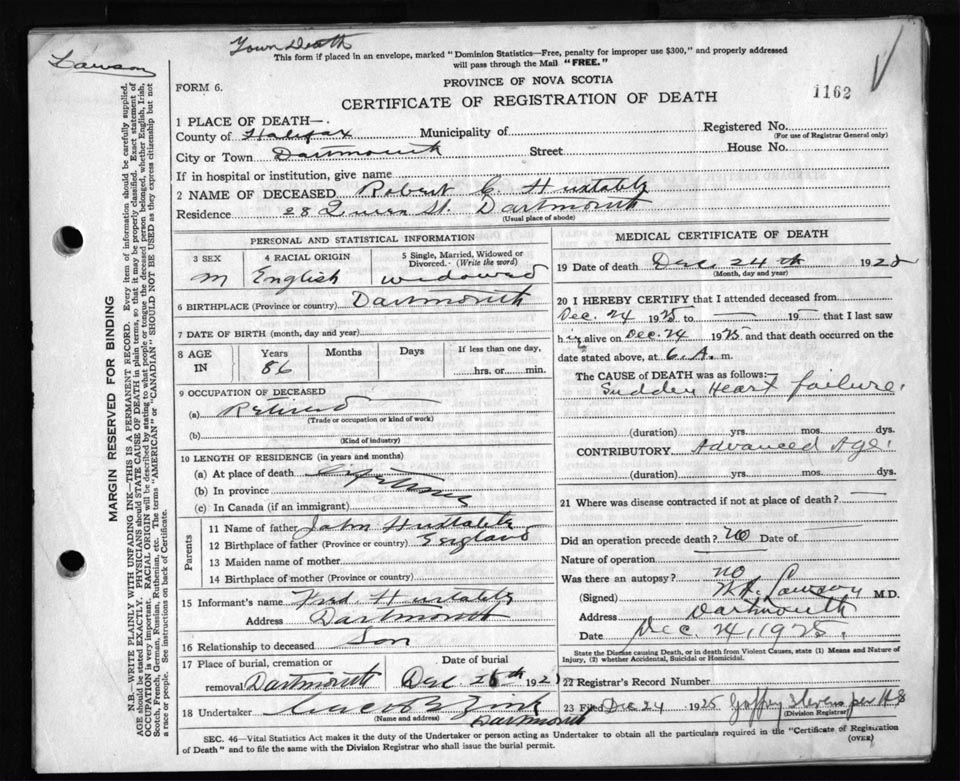 Town Death
Lawson
This form if placed in an envelope, marked "Dominion Statistics—Free, penalty for improper use $300," and properly addressed
will pass through the Mail "FREE."
PROVINCE OF NOVA SCOTIA
FORM 6.
CERTIFICATE OF REGISTRATION OF DEATH
1162
1 PLACE OF DEATH—
County of Halifax Municipality of Registered No.
(For use of Registrar General only)
City or Town Dartmouth Street House No.
If in hospital or institution, give name
2 NAME OF DECEASED Robert C. Huxtable
Residence 28 Queen St. Dartmouth
(Usual place of abode)
PERSONAL AND STATISTICAL INFORMATION
3 SEX 4 RACIAL ORIGIN 5 Single, Married, Widowed or
Divorced.- (Write the word)
M English widowed
6 BIRTHPLACE (Province or country) Dartmouth
7 DATE OF BIRTH (month, day and year)
8 AGE IN Years Months Days If less than one day,
86 hrs. or min.
9 OCCUPATION OF DECEASED
(a) Retired
(Trade or occupation or kind of work)
(b)
(Kind of industry)
10 LENGTH OF RESIDENCE (in years and months)
(a) At place of death Lifetime
(b) In province
(c) In Canada (if an immigrant)
Parents
11 Name of father John Huxtable
12 Birthplace of father (Province or country) England
13 Maiden name of mother
14 Birthplace of mother (Province or country)
15 Informant's name Fred. Huxtable
Address Dartmouth
16 Relationship to deceased Son
17 Place of burial, cremation or Date of burial
removal Dartmouth Dec 26th 192
18 Undertaker Zink
(Name and address) Dartmouth
MEDICAL CERTIFICATE OF DEATH
19 Date of death Dec. 24th 1925
(Month, day and year)
20 I HEREBY CERTIFY that I attended deceased from
Dec. 24 1925 to — 19 — that I last saw
him alive on Dec. 24 1925 and that death occurred on the
date stated above, at 6. A. m.
The CAUSE of DEATH was as follows:—
Sudden Heart failure.
(duration) yrs. mos. dys.
CONTRIBUTORY Advanced Age.
(duration) yrs. mos. dys.
21 Where was disease contracted if not at place of death? —
Did an operation precede death? No Date of
Nature of operation
Was there an autopsy? no
(Signed) Lawson M.D.
Address Dartmouth
Date Dec. 24, 1925.
State the Disease causing Death, or in death from Violent Causes, state (1) Means and Nature of
Injury, (2) whether Accidental, Suicidal or Homicidal.
22 Registrar's Record Number
23 Filed Dec 24 1925 Geoffrey Stevens per H S
(Division Registrar)
SEC. 46—Vital Statistics Act makes it the duty of the Undertaker or person acting as Undertaker to obtain all the particulars required in the "Certificate of Registration
of Death" and to file the same with the Division Registrar who shall issue the burial permit.
(OVER)
MARGIN RESERVED FOR BINDING
N.B.—WRITE PLAINLY WITH UNFADING INK—THIS IS A PERMANENT RECORD. Every item of information should be carefully supplied.
AGE should be stated EXACTLY. PHYSICIANS should STATE CAUSE OF DEATH in plain terms, so that it may be properly classified. Exact statement of
OCCUPATION is very important. RACIAL ORIGIN will be described by stating to what people or tongue the deceased person belonged, whether English, Irish,
Scotch, French, German, Russian, Ruthenian, etc. The terms "AMERICAN" or "CANADIAN" SHOULD NOT BE USED as they express citizenship but not
a race or people. See instructions on back of Certificate.